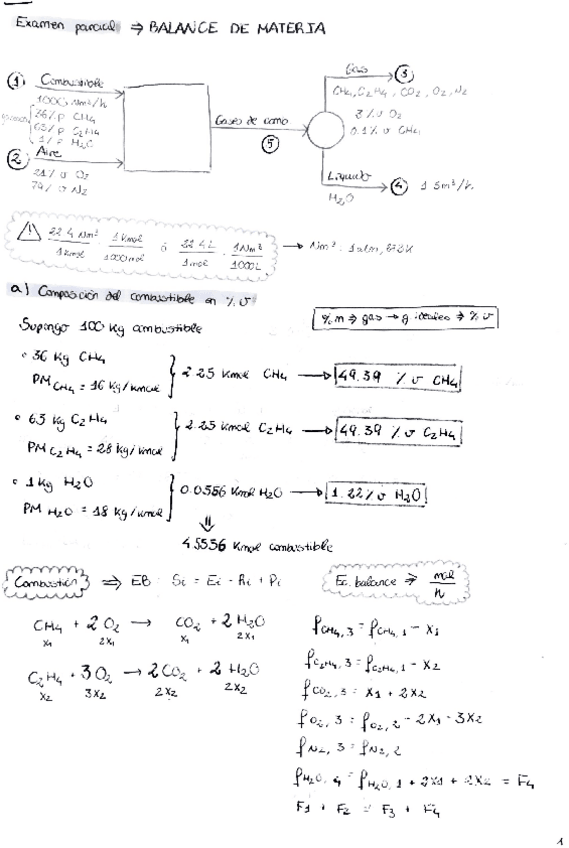 Examen parcial ⇒ BALANCE DE MATERIA
① Combustible
1000 Nm³/h
36%p CH₄
63%p C₂H₄
1%p H₂O
② Aire
21% v O₂
79% v N₂
Gases de
⑤
Gas ③
CH₄, C₂H₄, CO₂, O₂, N₂
% v O₂
0.1% v CH₄
Líquido ④
H₂O
m³/h
⚠ 22.4 Nm³ / 1 Kmol · 1 Kmol / 1000 mol ó 22.4 L / 1 mol · 1 Nm³ / 1000 L → Nm³: 1 atm, 273K
a) Composición del combustible en % v
%m ⇒ gas → g ideales ⇒ % v
Supongo 100 Kg combustible
• 36 Kg CH₄
PM CH₄ = 16 Kg/Kmol
2.25 Kmol CH₄ → 49.39 % v CH₄
• 63 Kg C₂H₄
PM C₂H₄ = 28 Kg/Kmol
2.25 Kmol C₂H₄ → 49.39 % v C₂H₄
• 1 Kg H₂O
PM H₂O = 18 Kg/Kmol
0.0556 Kmol H₂O → 1.22% v H₂O
⇓
4.5556 Kmol combustible
Combustión ⇒ EB: Si = Ei - Ri + Pi
Ec. balance ⇒ mol / h
CH₄ + 2O₂ → CO₂ + 2H₂O
x₁ 2x₁ x₁ 2x₁
C₂H₄ + 3O₂ → 2CO₂ + 2H₂O
x₂ 3x₂ 2x₂ 2x₂
f CH₄, 3 = f CH₄, 1 - x₁
f C₂H₄, 3 = f C₂H₄, 1 - x₂
f CO₂, 3 = x₁ + 2x₂
f O₂, 3 = f O₂, 2 - 2x₁ - 3x₂
f N₂, 3 = f N₂, 2
f H₂O, 4 = f H₂O, 1 + 2x₁ + 2x₂ = F₄
F₁ + F₂ = F₃ + F₄
1